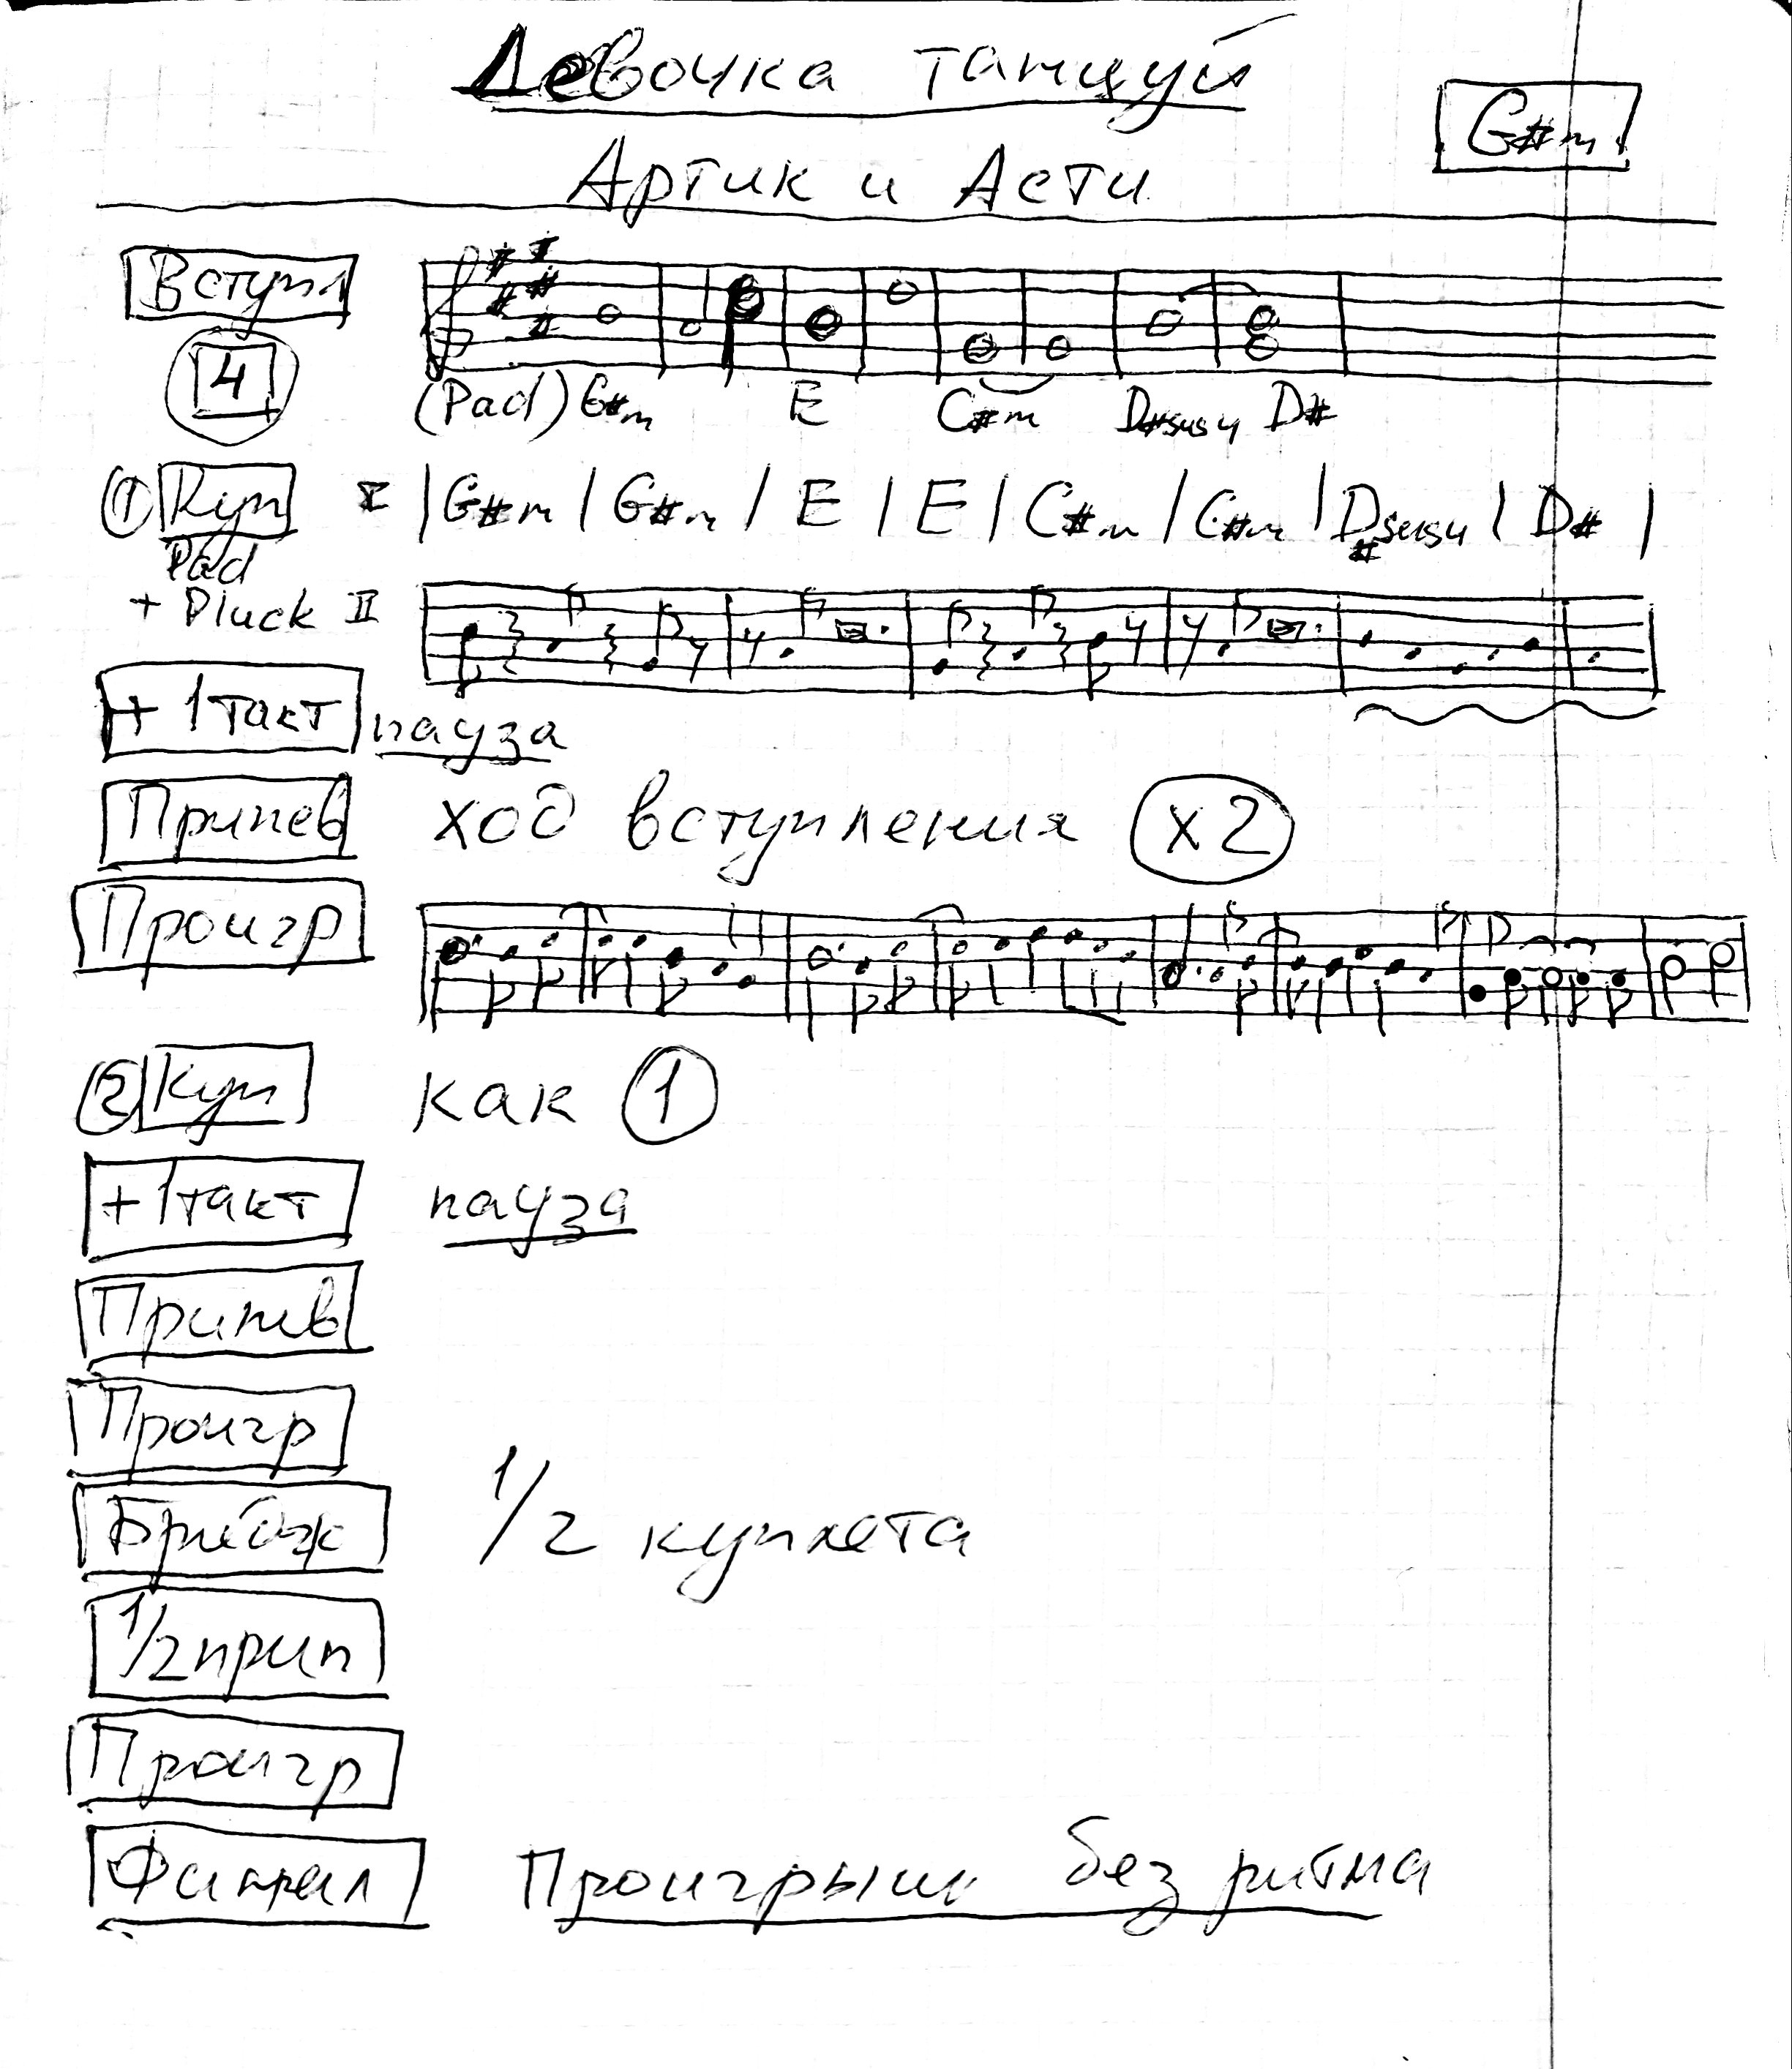 Девочка танцуй
G#m
Артик и Асти
Вступл
4
(Pad) G#m E C#m D#sus4 D#
1 Куп I | G#m | G#m | E | E | C#m | C#m | D#sus4 | D# |
Pad
+ Pluck II
+ 1 такт пауза
Припев ход вступления x2
Проигр
2 Куп как 1
+ 1 такт пауза
Припев
Проигр
Бридж 1/2 куплета
1/2 прип
Проигр
Финал Проигрыш без ритма